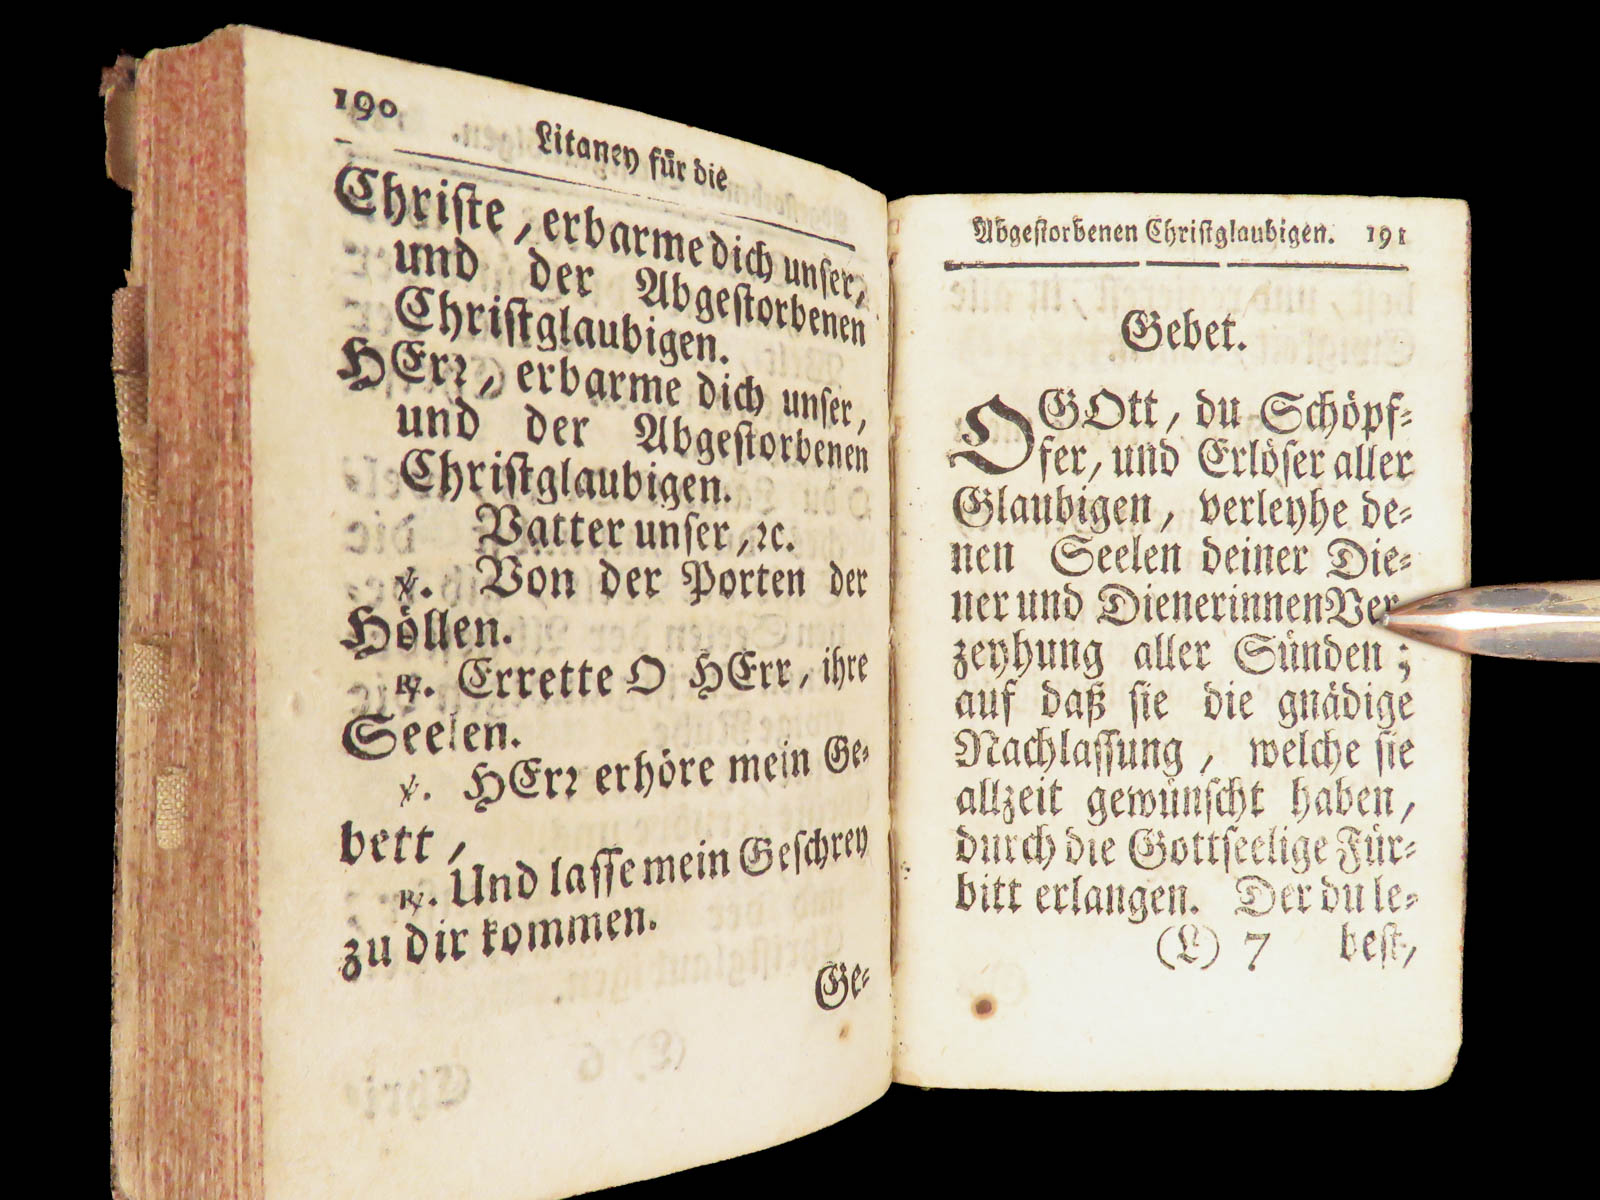 190
Litaney für die
Christe, erbarme dich unser,
und der Abgestorbenen
Christglaubigen.
HErꝛ, erbarme dich unser,
und der Abgestorbenen
Christglaubigen.
Vatter unser, ꝛc.
℣. Von der Porten der
Höllen.
℟. Errette O HErr, ihre
Seelen.
℣. HErꝛ erhöre mein Ge-
bett,
℟. Und lasse mein Geschrey
zu dir kommen.
Ge-
Abgestorbenen Christglaubigen. 191
Gebet.
O GOtt, du Schöpf-
fer, und Erlöser aller
Glaubigen, verleyhe de-
nen Seelen deiner Die-
ner und Dienerinnen Ver
zeyhung aller Sünden;
auf daß sie die gnädige
Nachlassung, welche sie
allzeit gewünscht haben,
durch die Gottseelige Für-
bitt erlangen. Der du le-
(L) 7 best,